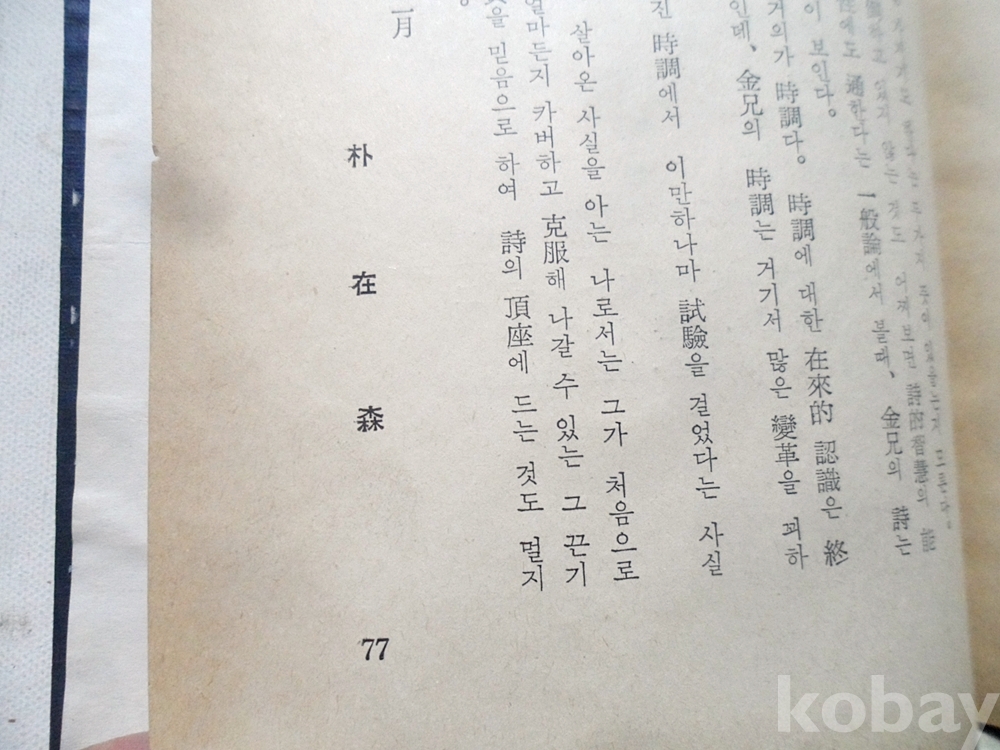 모른다.
않는 것도 어찌보면 詩的智慧의
에도 通한다는 一般論에서 볼때、 金兄의 詩는
이 보인다。
거의가 時調다。 時調에 대한 在來的 認識은 終
인데、 金兄의 時調는 거기서 많은 變革을 꾀하
진 時調에서 이만하나마 試驗을 걸었다는 사실
살아온 사실을 아는 나로서는 그가 처음으로
얼마든지 카버하고 克服해 나갈 수 있는 그 끈기
을 믿음으로 하여 詩의 頂座에 드는 것도 멀지
月
朴在森
77
kobay